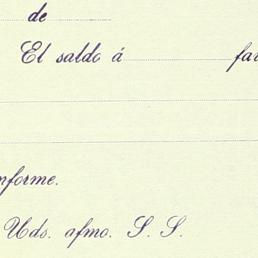 de
El saldo á fa
nforme.
Uds. afmo. S. S.